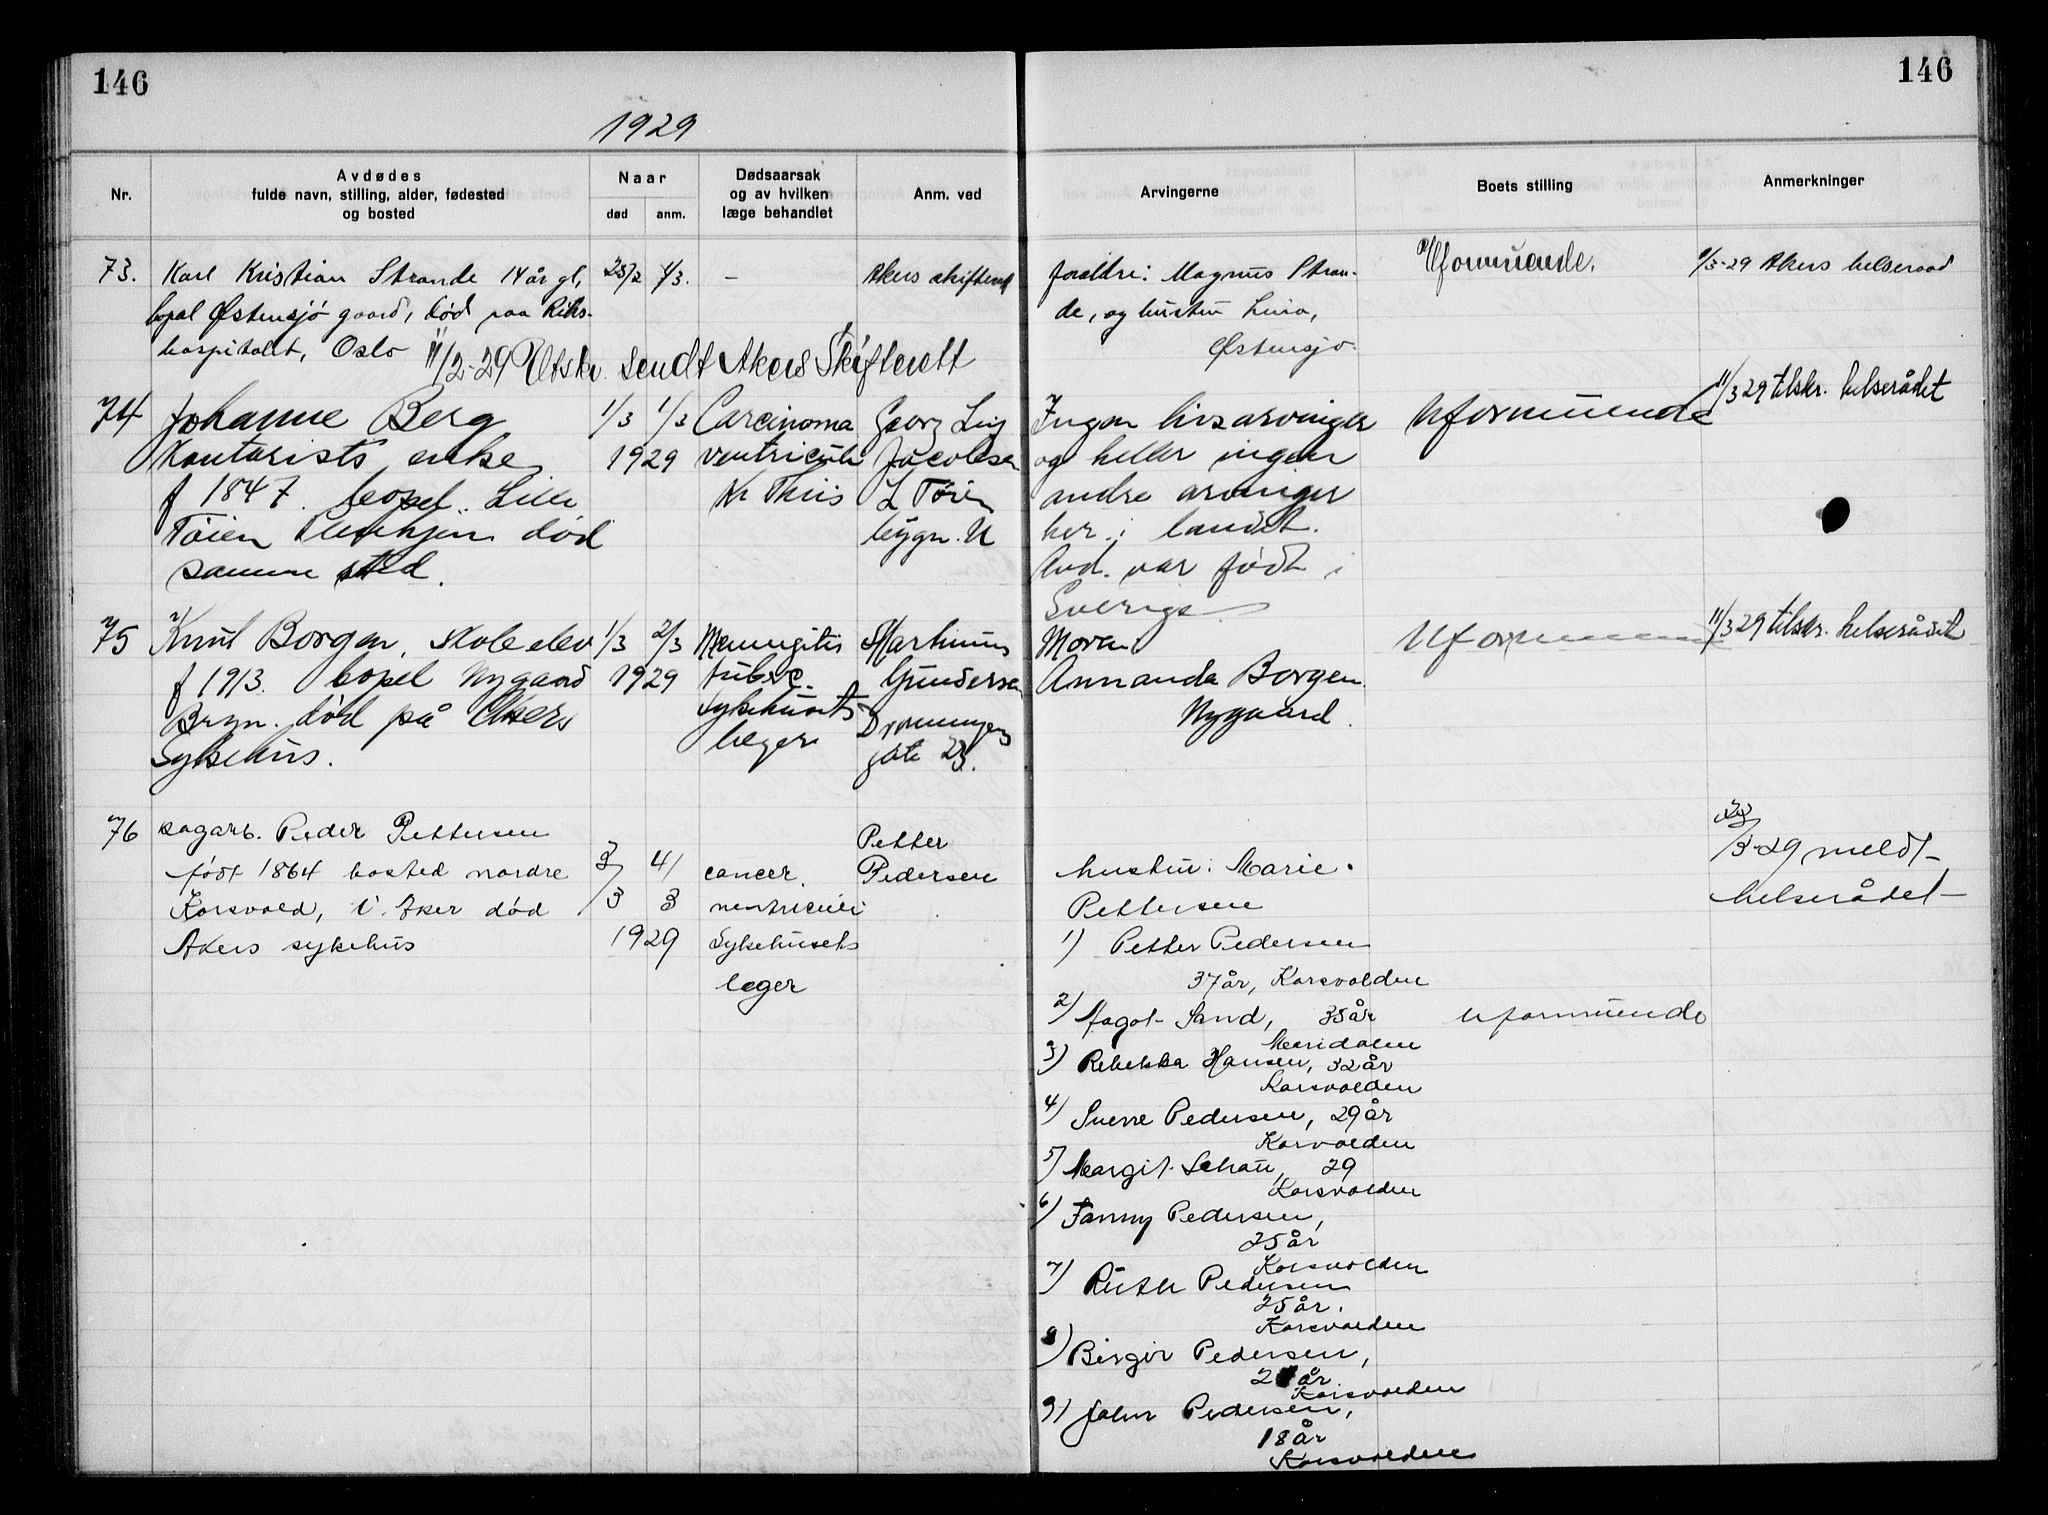 146
146
1929
Nr.
Avdødes
fulde navn, stilling, alder, fødested
og bosted
Naar
død
anm.
Dødsaarsak
og av hvilken
læge behandlet
Anm. ved
Arvingerne
Boets stilling
Anmerkninger
73.
Karl Kristian Strande 14 år gl,
bopæl Østensjø gaard, død paa Riks-
hospitalet, Oslo
1/3.
-
Akers skifterett
foreldre: Magnus Stran-
de, og hustru
Østensjø.
Uformuende.
Akers helseraad
11/2-29 Utskr. sendt Akers Skifterett
74
Johanne Berg
Kontorists enke
f 1847. bopel. Lille
Tøien død
samme sted.
1/3
1/3
1929
Carcinoma
ventriculi
Thiis
Georg
Jacobsen
L Tøien
bygn. U
Ingen livsarvinger
og heller ingen
andre arvinger
her i landet.
Avd. var født i
Sverige
Uformuende
11/3 29 tilskr. helserådet
75
Knut Borgen, Skoleelev
f 1913. bopel Nygaard
Bryn. død på Akers
Sykehus.
1/3
2/3
1929
Meningitis
tuberc.
Sykehusets
læger
Martinius
Gundersen
Dronningens
gate 23.
Moren
Annanda Borgen.
Nygaard.
Uformuende
11/3 29 tilskr. helserådet
76
sagarb. Peder Pettersen
født 1864 bosted nordre
Korsvold, V. Aker død
Akers sykehus
3/3
4/3
1929
cancer.
ventriculi
Sykehusets
leger
Petter
Pedersen
hustru: Marie
Pettersen
1) Petter Pedersen
37 år, Korsvolden
2) Magot Sand, 35 år
Maridalen
3) Rebekka Hansen, 32 år
Korsvolden
4) Sverre Pedersen, 29 år
Korvolden
5) Margit Schau, 29
Korsvolden
6) Fanny Pedersen,
25 år
Korsvolden
7) Ruth Pedersen
25 år.
Korsvolden
8) Birger Pedersen,
21 år
Korsvolden
9) John Pedersen,
18 år
Korsvolden
Uformuende
/3-29 meldt
helserådet